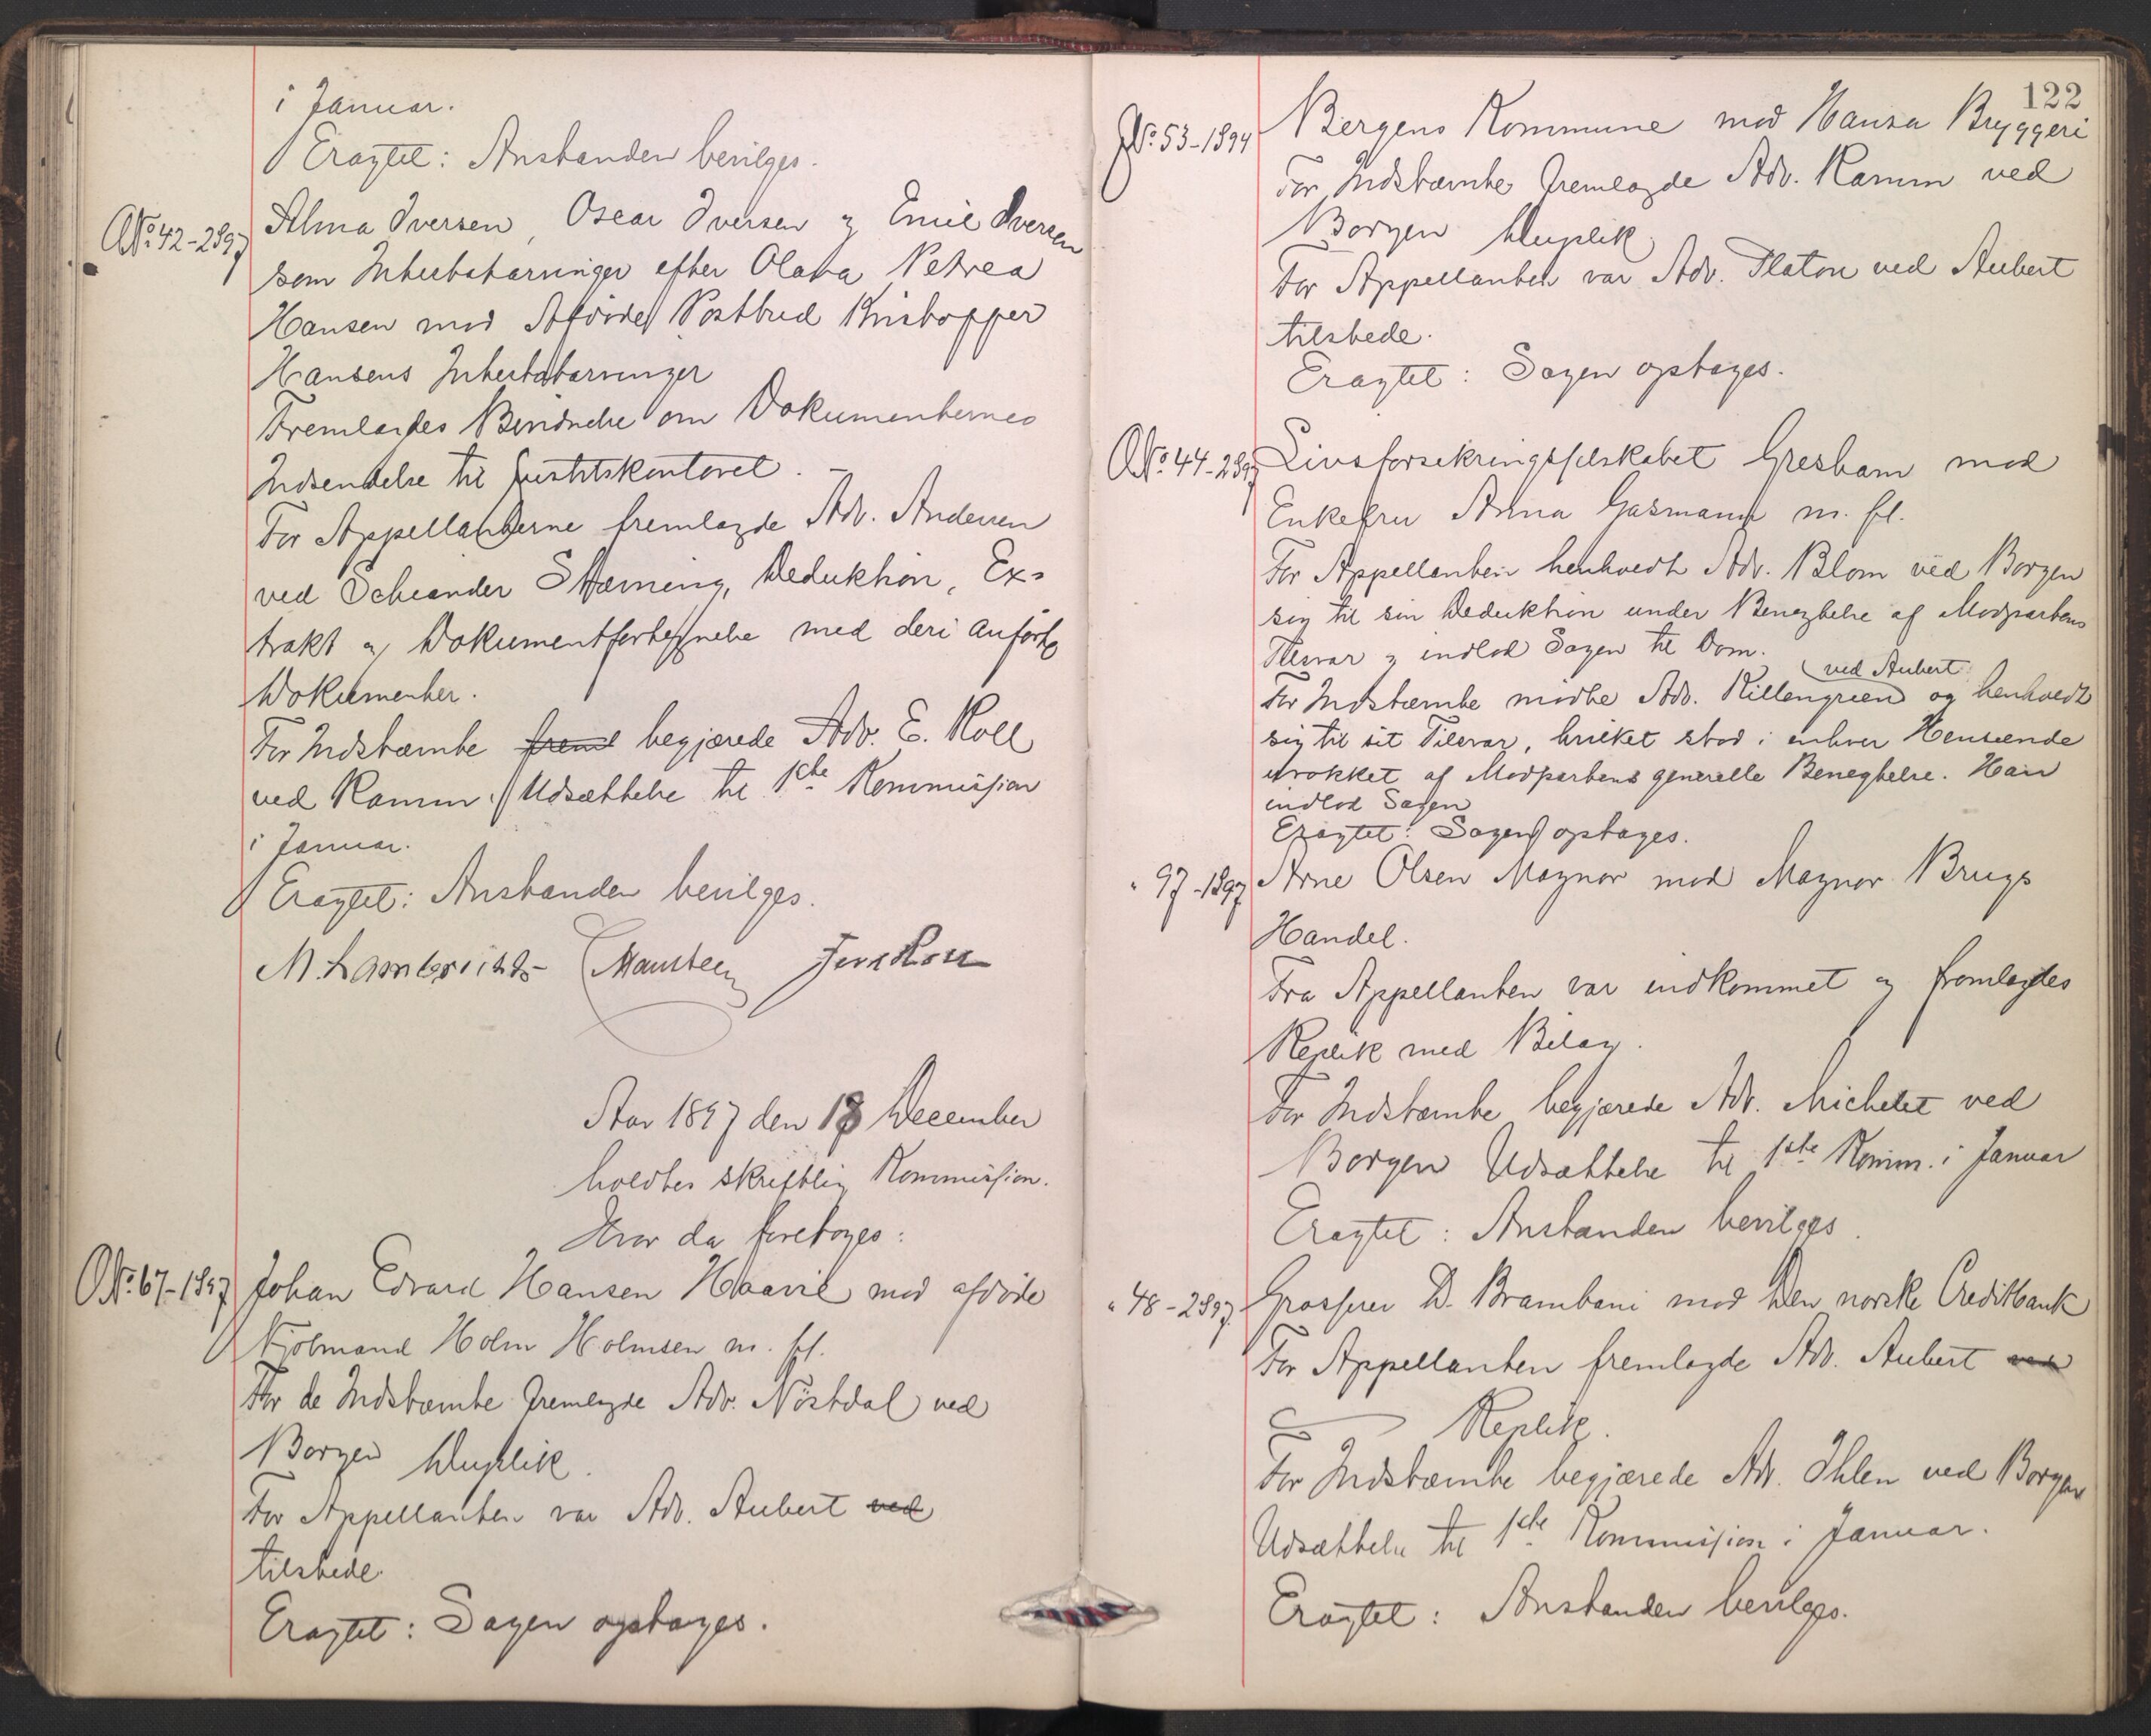 i Januar.
Eragtet: Anstanden bevilges.
O No. 42-2897 Alma Iversen, Oscar Iversen og Emil Iversen
som Intestatarvinger efter Olava Petrea
Hansen mod Afdøde Postbud Kristoffer
Hansens Intestatarvinger
Fremlagdes Bevidnelse om Dokumenternes
Indsendelse til Justitskontoret. -
For Appellanterne fremlagde Adv. Andersen
ved Schiander Stævning, Deduktion, Ex-
trakt og Dokumentfortegnelse med deri anførte
Dokumenter.
For Indstævnte freml begjærede Adv. E. Roll
ved Ramm Udsættelse til 1ste Kommission
i Januar.
Eragtet: Anstanden bevilges.
M. Lambrichts Jens Roll
Aar 1897 den 18 December
holdtes skriftlig Kommission.
Hvor da foretoges:
O No. 67-1897 Johan Edvard Hansen Haavil mod afdøde
Kjøbmand Holm Holmsen m. fl.
For de Indstævnte fremlagde Adv. Nøstdal ved
Borgen Duplik.
For Appellanten var Adv. Aubert ved
tilstede.
Eragtet: Sagen optages.
122
No. 53-1894 Bergens Kommune mod Hansa Bryggeri
For Indstævnte fremlagde Adv. Ramm ved
Borgen Duplik.
For Appellanten var Adv. Platou ved Aubert
tilstede.
Eragtet: Sagen optages.
O No. 44-2897 Livsforsikringsselskabet Gresham mod
Enkefru Anna Gasmann m. fl.
For Appellanten henholdt Adv. Blom ved Borgen
sig til sin Deduktion under Benegtelse af Modpartens
Tilsvar og indlod Sagen til Dom.
ved Aubert
For Indstævnte mødte Adv. Killengreen og henholdt
sig til sit Tilsvar, hvilket stod i enhver Henseende
urokket af Modpartens generelle Benegtelse. Han
indlod Sagen
Eragtet: Sagen optages.
" 97-1897 Arne Olsen Magnor mod Magnor Brugs
Handel.
Fra Appellanten var indkommet og fremlagdes
Replik med Bilag.
For Indstævnte begjærede Adv. Michelet ved
Borgen Udsættelse til 1ste Komm. i Januar
Eragtet: Anstanden bevilges.
" 48-2897 Grosserer D. Brambani mod Den norske Creditbank
For Appellanten fremlagde Adv. Aubert ved
Replik.
For Indstævnte begjærede Adv. Ihlen ved Borgen
Udsættelse til 1ste Kommission i Januar.
Eragtet: Anstanden bevilges.